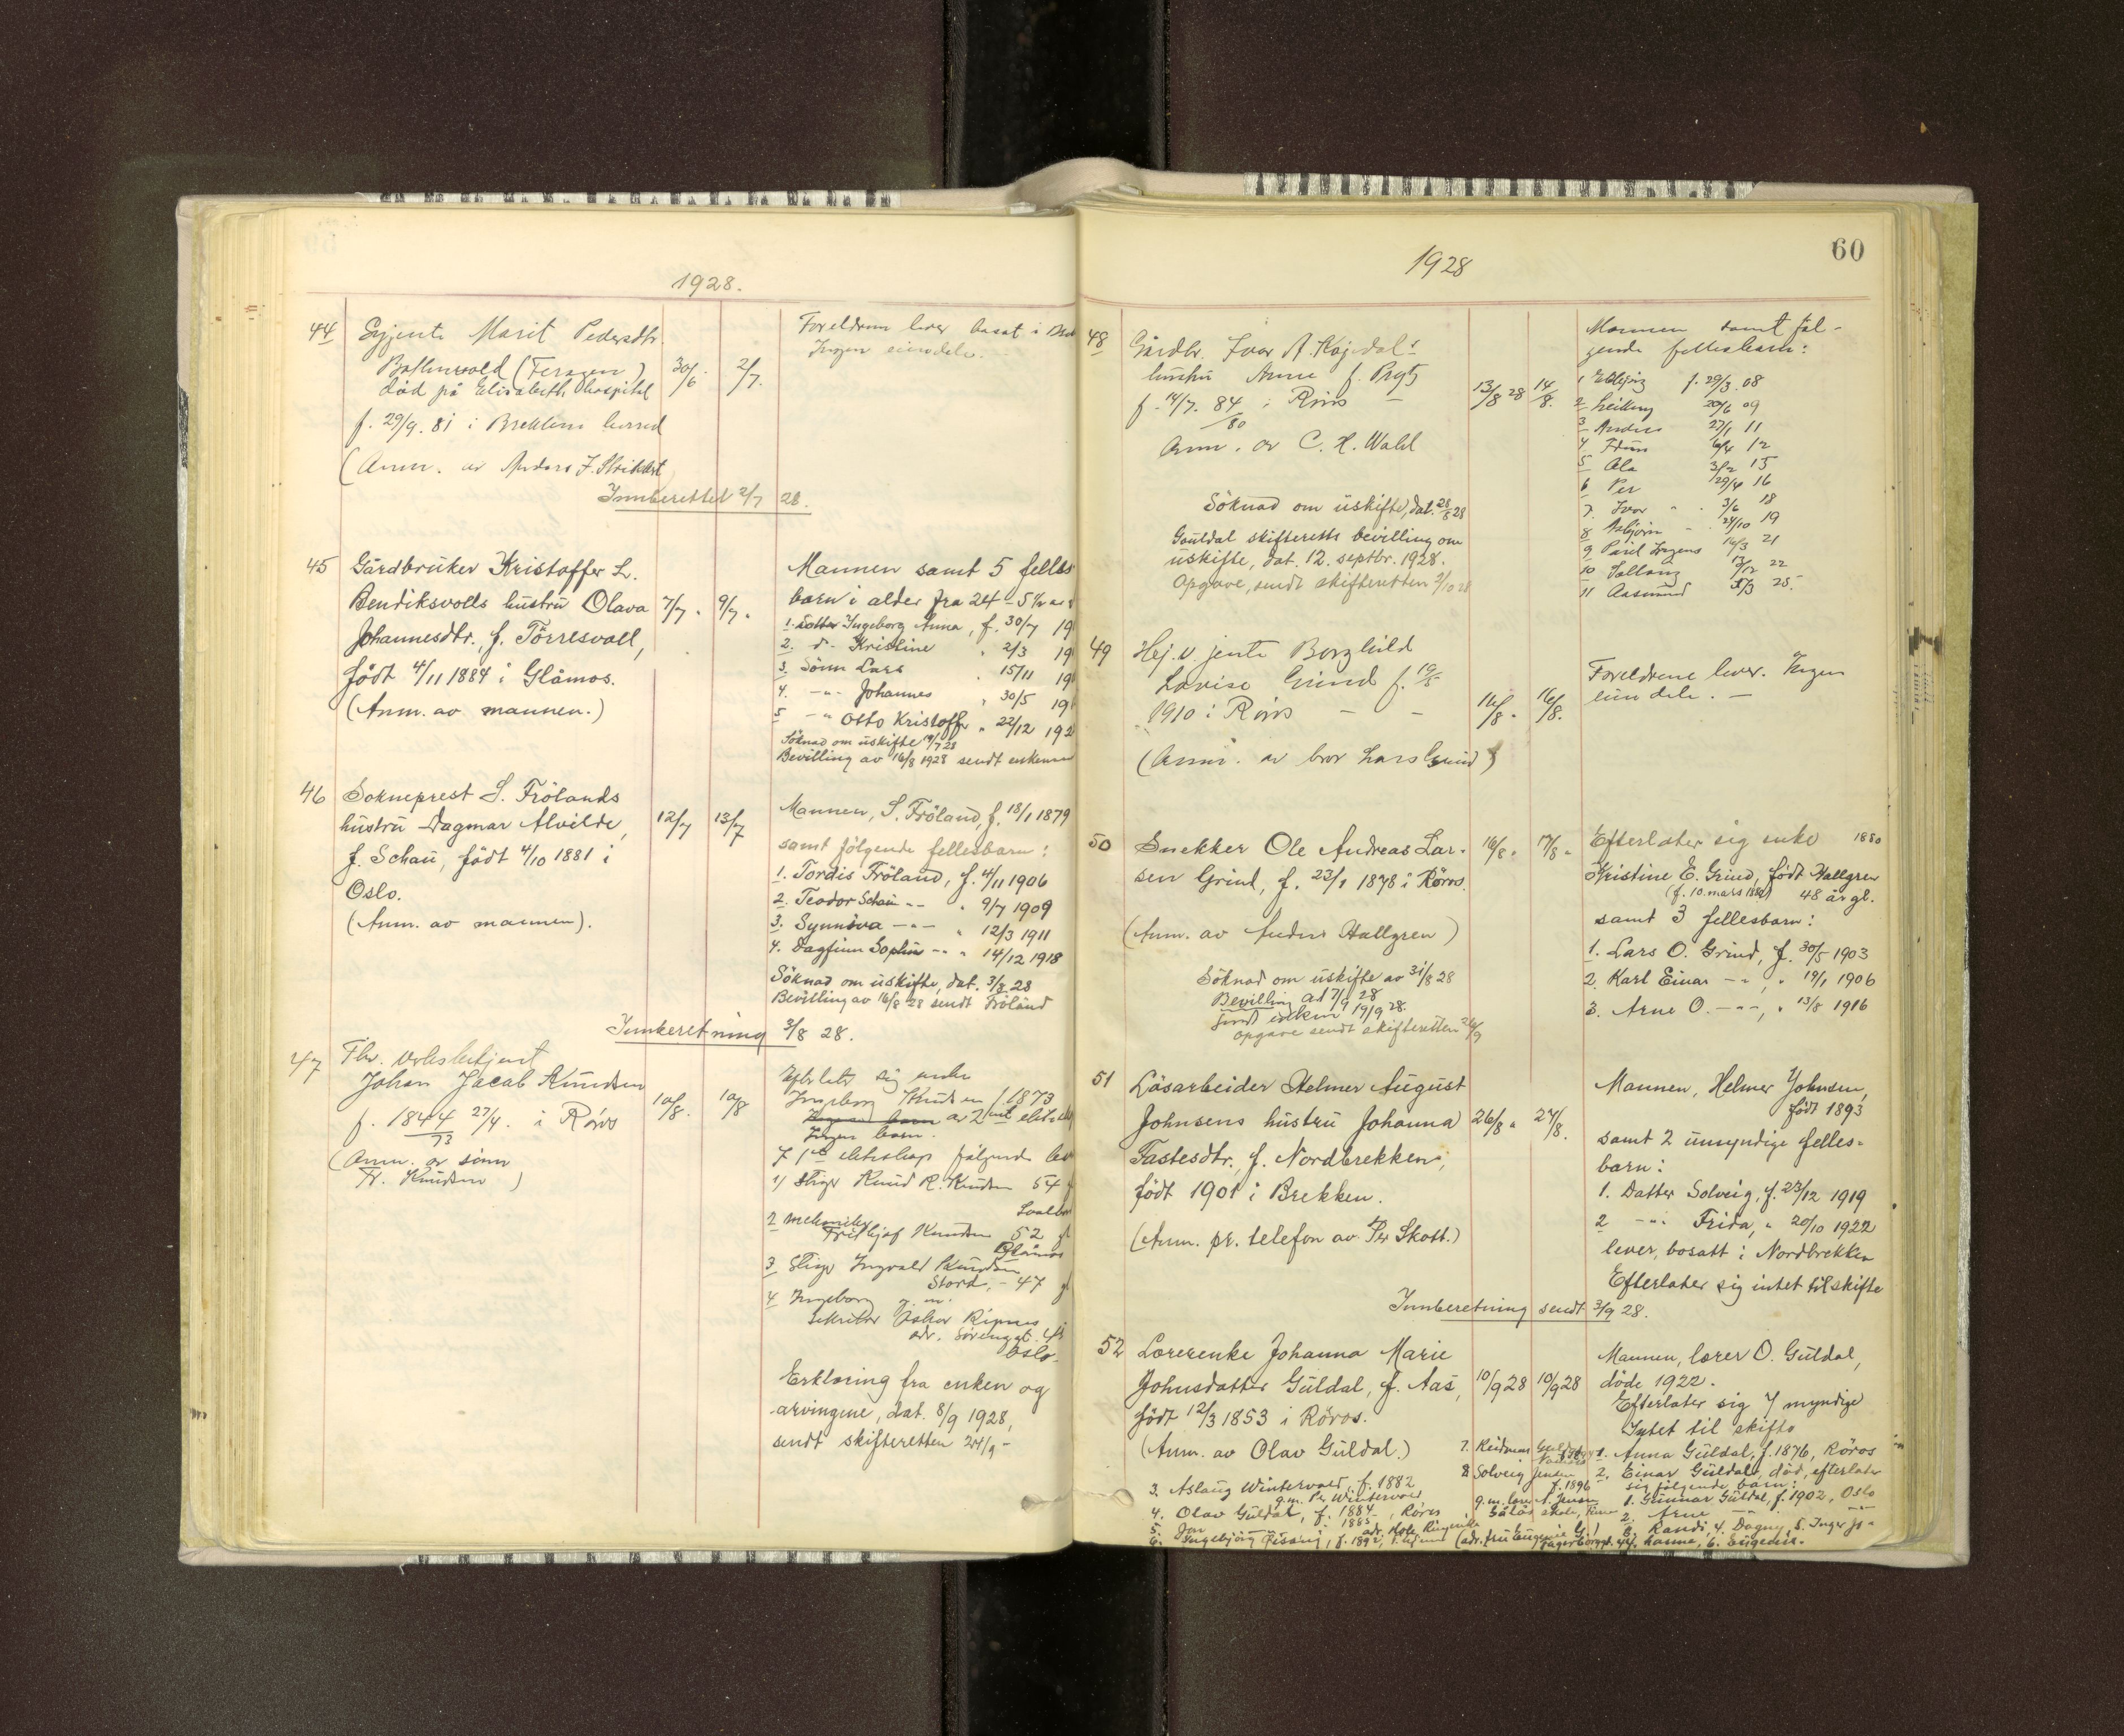 1928.
44 Marit Pedersdtr.
(Feragen) 30/6 2/7.
død på Elisabeth hospital
f. 29/9. 81 i Brekken herred
(Anm. av Anders J.
Innberettet 2/7 28.
Foreldrene lever bosat i
Ingen eiendele.
45 Gårdbruker Kristoffer L.
Bendiksvolls hustru Olava 7/7. 9/7.
Johannesdtr., f. Törresvoll,
født 4/11 1884 i Glåmos.
(Anm. av mannen.)
Mannen samt 5 felles
barn i alder fra 24 - 5 1/2
1. Datter Ingeborg Anna, f. 30/7 19
2. d- Kristine " 2/3 19
3. Sönn Lars " 15/11 19
4. -"- Johannes " 30/5 19
5 -"- Otto Kristoffer " 22/12 192
Söknad om uskifte 19/7 28
Bevilling av 16/8 1928 sendt
46 Sokneprest S. Frölands
hustru Dagmar Alvilde, 12/7 13/7
f. Schau, født 4/10 1881 i
Oslo.
(Anm. av mannen).
Mannen, S. Fröland, f. 18/1 1879
samt følgende fellesbarn:
1. Tordis Fröland, f. 4/11 1906
2. Teodor Schau -"- " 9/7 1909
3. Synnöva -"- " 12/3 1911
4. Dagfinn Sophus -"- " 14/12 1918
Söknad om uskifte, dat. 3/8 28
Bevilling av 16/8 28 sendt Fröland
Innberetning 3/8 28.
47 Fhv.
Johan Jacob Knudsen 10/8. 10/8
f. 1844 27/4. i Röros
73
(Anm. av sönn
Fr. Knudsen)
Efterlater sig enke
Ingeborg Knudsen f. 1873
Ingen barn.
I 1ste ekteskap følgende
1) Stiger Knud R. Knudsen 54
2 mekaniker
Fridtjof Knudsen 52
Glåmos
3 Stiger Ingvald Knudsen
Stord, - 47
4 Ingeborg g. m.
Oskar
adr.
Oslo.
Erklæring fra enken og
arvingene, dat. 8/9 1928,
sendt skifteretten 24/9 -
60
1928
48 Gårdbr. Ivar A.
hustru Anne f. Prytz
f. 14/7. 84 i Röros - 13/8 28 14/8.
80
Anm. av C. H. Wahl
Söknad om uskifte, dat. 28/8 28
Gauldal skifteretts bevilling om
uskifte, dat. 12. septbr. 1928.
Opgave, sendt skifteretten 2/10 28
Mannen samt føl-
gende fellesbarn:
1 f. 29/3. 08
2 20/6 09
3 Anders 27/1 11
4 6/4 12
5 Ola 3/2 15
6 Per 29/4 16
7. Ivar 3/6 18
8 Asbjörn 24/10 19
9 16/3 21
10 13/12 22
11 Aasmund 5/3 25.
49 Hj.v. jente Borghild
Lovise Grind f. 19/5
1910 i Röros - - 16/8. 16/8.
(Anm. av bror Lars Grind)
Foreldrene lever. Ingen
eiendele. -
50 Snekker Ole Andreas Lar- 16/8. 17/8.
sen Grind, f. 23/1 1878 i Röros.
(Anm. av Anders Hallgren)
Söknad om uskifte av 31/8 28
Bevilling ad 7/9 28
Sendt enken 19/9 28.
Opgave sendt skifteretten 26/9
Efterlater sig enke 1880
Kristine E. Grind, født Hallgren
(f. 10. mars 1880) 48 år gl.
samt 3 fellesbarn:
1. Lars O. Grind, f. 30/5 1903
2. Karl Einar -"-, " 19/1 1906
3. Arne O. -"-, " 13/8 1916
51 Lösarbeider Helmer August
Johnsens hustru Johanna 26/8. 27/8.
Tastesdtr., f. Nordbrekken,
født 1901 i Brekken.
(Anm. pr. telefon av Per Skott.)
Mannen, Helmer Johnsen,
født 1893
samt 2 umyndige felles-
barn:
1. Datter Solveig, f. 23/12 1919
2 -"- Frida, " 20/10 1922
lever, bosatt i Nordbrekken
Efterlater sig intet til skifte
Innberetning sendt 3/9 28.
52 Lærerenke Johanna Marie
Johnsdatter Güldal, f. Aas, 10/9 28 10/9 28
født 12/3 1853 i Röros.
(Anm. av Olav Güldal.)
Mannen, lærer O. Güldal,
döde 1922.
Efterlater sig 7 myndige
Intet til skifte
1. Anna Güldal, f. 1876, Röros
2. Einar Güldal, död, efterlater
sig følgende barn:
1. Gunnar Güldal, f. 1902, Oslo
2. Arne -"-
3. Randi, 4. Dagny, 5. Inger Jo-
hanne, 6.
3. Aslaug Wintervold, f. 1882
g.m. P. Wintervold
4. Olav Güldal, f. 1884, Röros
5. Jon 1885
6. Ingebjörg f. 1892,
7. Reidmar Güldal
8 Solveig Jensen
f. 1896